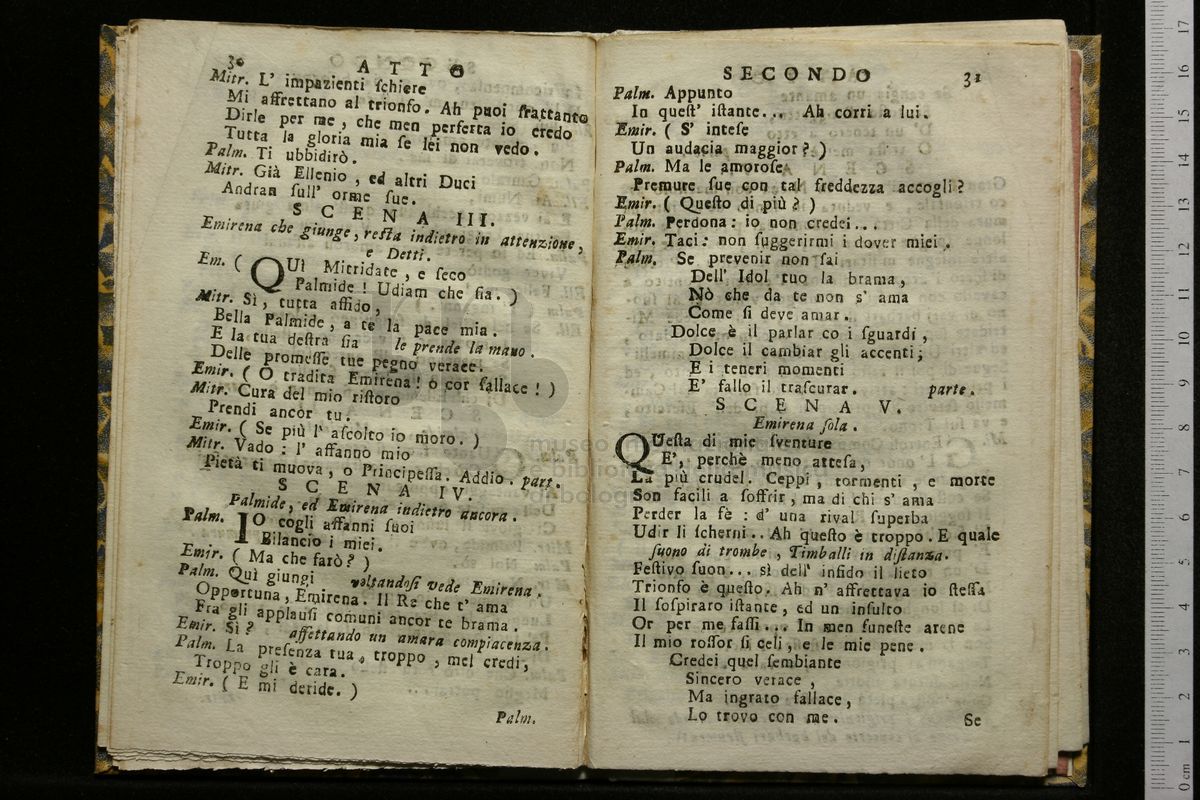 30 ATTO
Mitr. L' impazienti ſchiere
Mi affrettano al trionfo. Ah puoi frattanto
Dirle per me, che men perfetta io credo
Tutta la gloria mia ſe lei non vedo.
Palm. Ti ubbidirò.
Mitr. Già Ellenio, ed altri Duci
Andran ſull' orme ſue.
SCENA III.
Emirena che giunge, reſta indietro in attenzione,
e Detti.
Em. ( QUì Mitridate, e ſeco
Palmide! Udiam che ſia. )
Mitr. Sì, tutta affido,
Bella Palmide, a te la pace mia.
E la tua deſtra ſia le prende la mano.
Delle promeſſe tue pegno verace.
Emir. ( O tradita Emirena! o cor fallace! )
Mitr. Cura del mio riſtoro
Prendi ancor tu.
Emir. ( Se più l' aſcolto io moro. )
Mitr. Vado: l' affanno mio
Pietà ti muova, o Principeſſa. Addio. part.
SCENA IV.
Palmide, ed Emirena indietro ancora.
Palm. IO cogli affanni ſuoi
Bilancio i miei.
Emir. ( Ma che farò? )
Palm. Quì giungi voltandoſi vede Emirena.
Opportuna, Emirena. Il Re che t' ama
Fra gli applauſi comuni ancor te brama.
Emir. Sì? affettando un amara compiacenza.
Palm. La preſenza tua, troppo, mel credi,
Troppo gli è cara.
Emir. ( E mi deride. )
Palm.
SECONDO 31
Palm. Appunto
In queſt' iſtante... Ah corri a lui.
Emir. ( S' inteſe
Un audacia maggior? )
Palm. Ma le amoroſe
Premure ſue con tal freddezza accogli?
Emir. ( Queſto di più? )
Palm. Perdona: io non credei...
Emir. Taci: non ſuggerirmi i dover miei.
Palm. Se prevenir non ſai
Dell' Idol tuo la brama,
Nò che da te non s' ama
Come ſi deve amar.
Dolce è il parlar co i ſguardi,
Dolce il cambiar gli accenti;
E i teneri momenti
E' fallo il traſcurar. parte.
SCENA V.
Emirena ſola.
QUeſta di mie ſventure
E', perchè meno atteſa,
La più crudel. Ceppi, tormenti, e morte
Son facili a ſoffrir, ma di chi s' ama
Perder la fè: d' una rival ſuperba
Udir li ſcherni.. Ah queſto è troppo. E quale
ſuono di trombe, Timballi in diſtanza.
Feſtivo ſuon... sì dell' infido il lieto
Trionfo è queſto. Ah n' affrettava io ſteſſa
Il ſoſpiraro iſtante, ed un inſulto
Or per me faſſi... In men funeſte arene
Il mio roſſor ſi celi, e le mie pene.
Credei quel ſembiante
Sincero verace,
Ma ingrato fallace,
Lo trovo con me.
Se